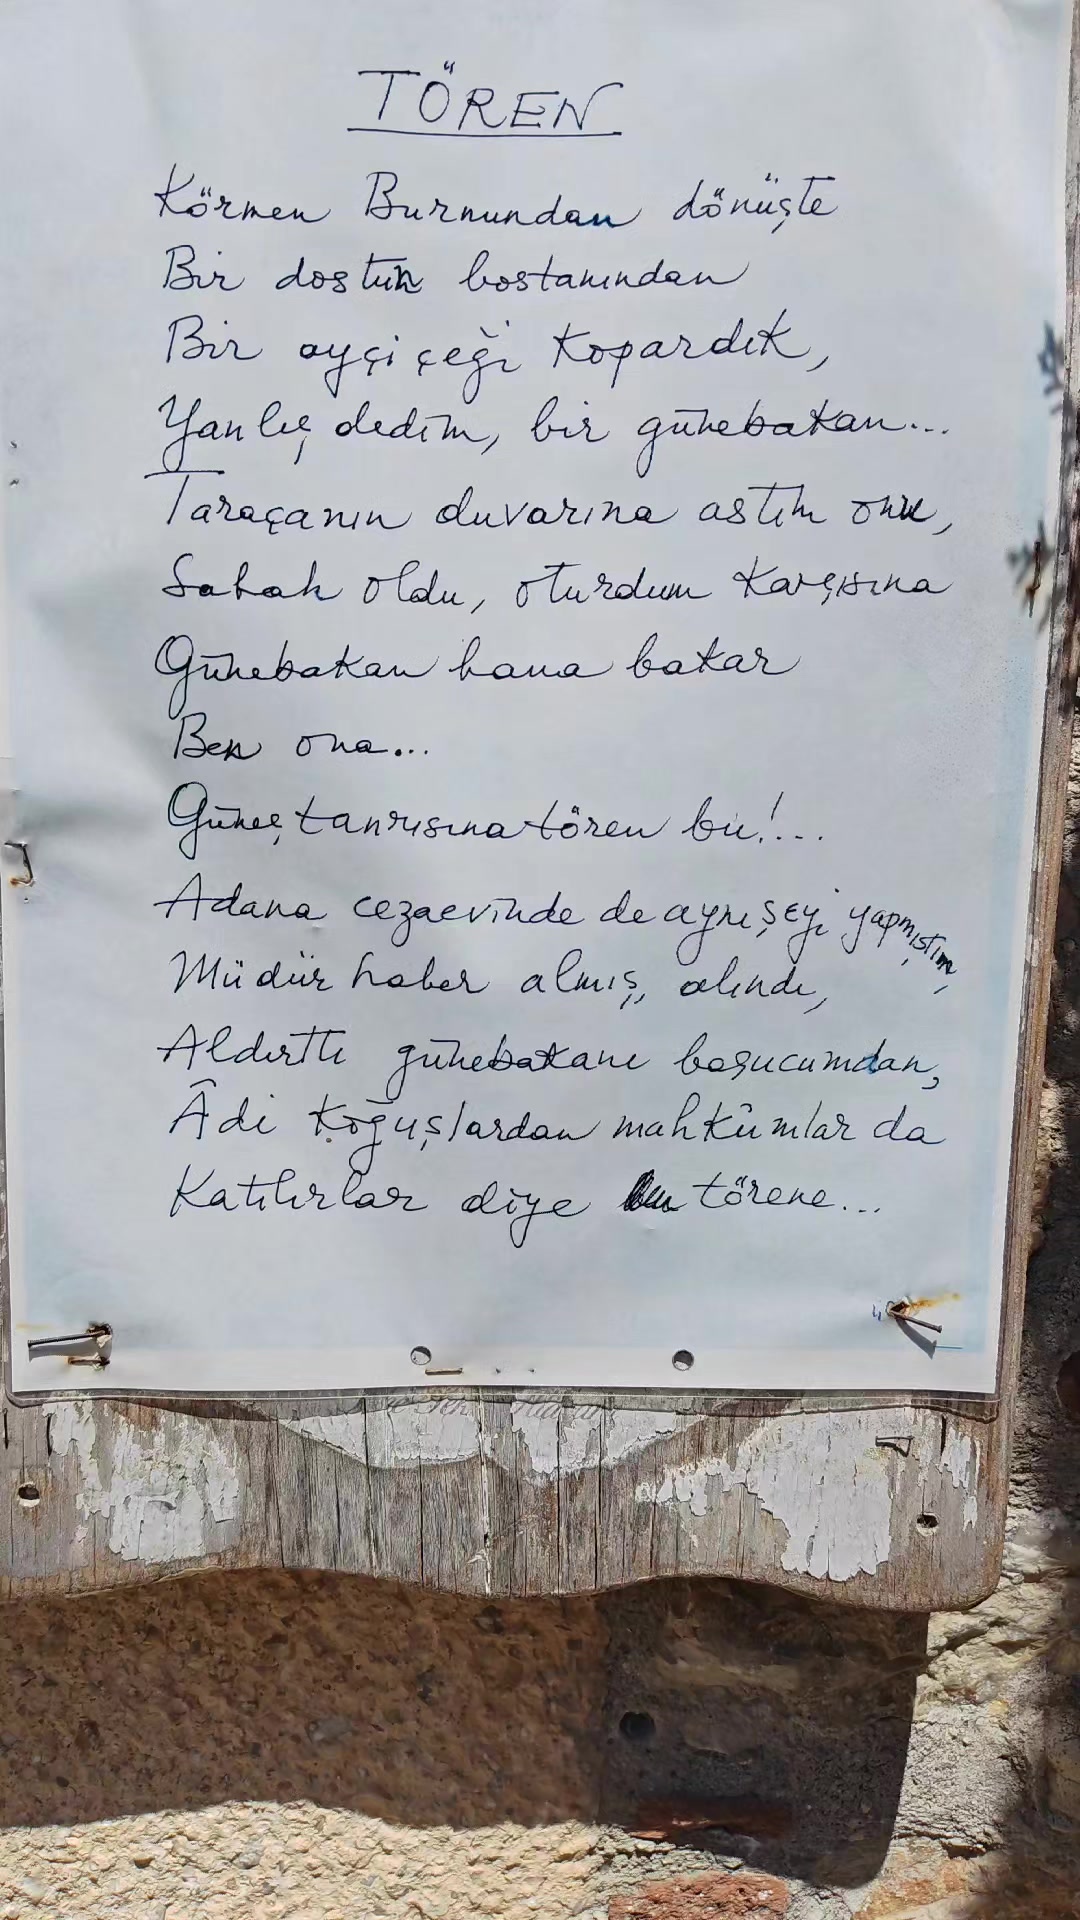 TÖREN
Körmen Burnundan dönüşte
Bir dostun bostanından
Bir ayçiçeği kopardık,
Yanlış dedim, bir günebakan...
Taraçanın duvarına astım onu,
Sabah oldu, oturdum karşısına
Günebakan bana bakar
Ben ona...
Güneş tanrısına tören bu!...
Adana cezaevinde de aynı şeyi yapmıştım,
Müdür haber almış, alındı,
Aldırttı günebakanı başucumdan,
Âdi koğuşlardan mahkûmlar da
Katılırlar diye törene...